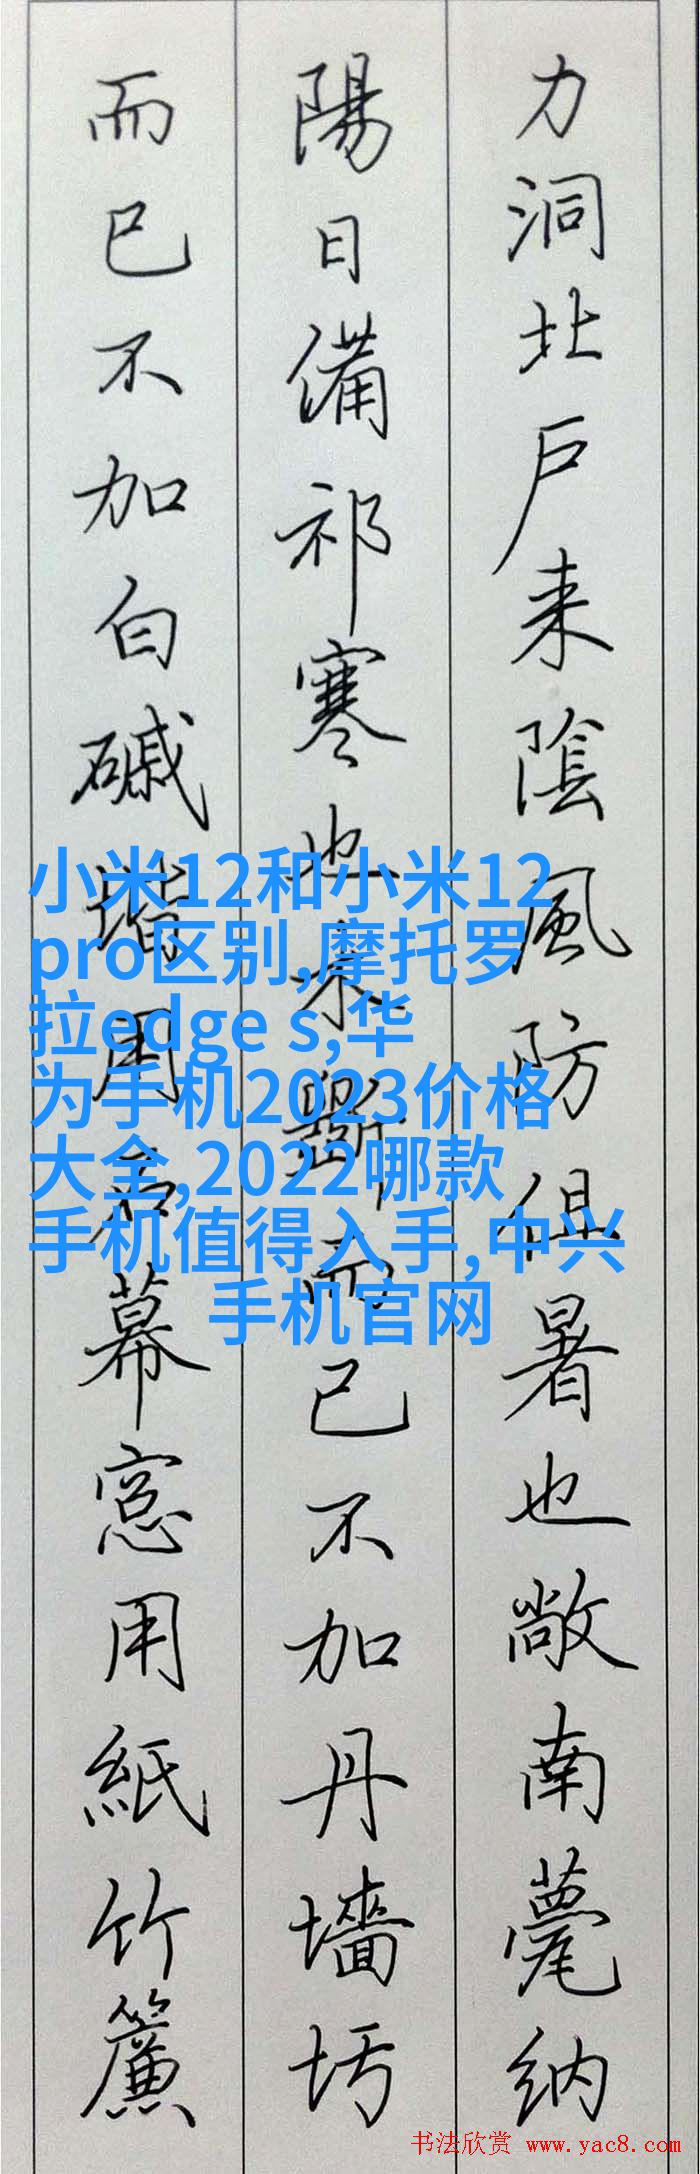 力洞北户来陰風防徂暑也敞南甍纳
陽日備祁寒也木斲而已不加丹墻圬
而已不加白磩堦用石幕窓用紙竹簾
小米12和小米12
pro区别,摩托罗
拉edge s,华
为手机2023价格
大全,2022哪款
手机值得入手,中兴
手机官网
书法欣赏 www.yac8.com